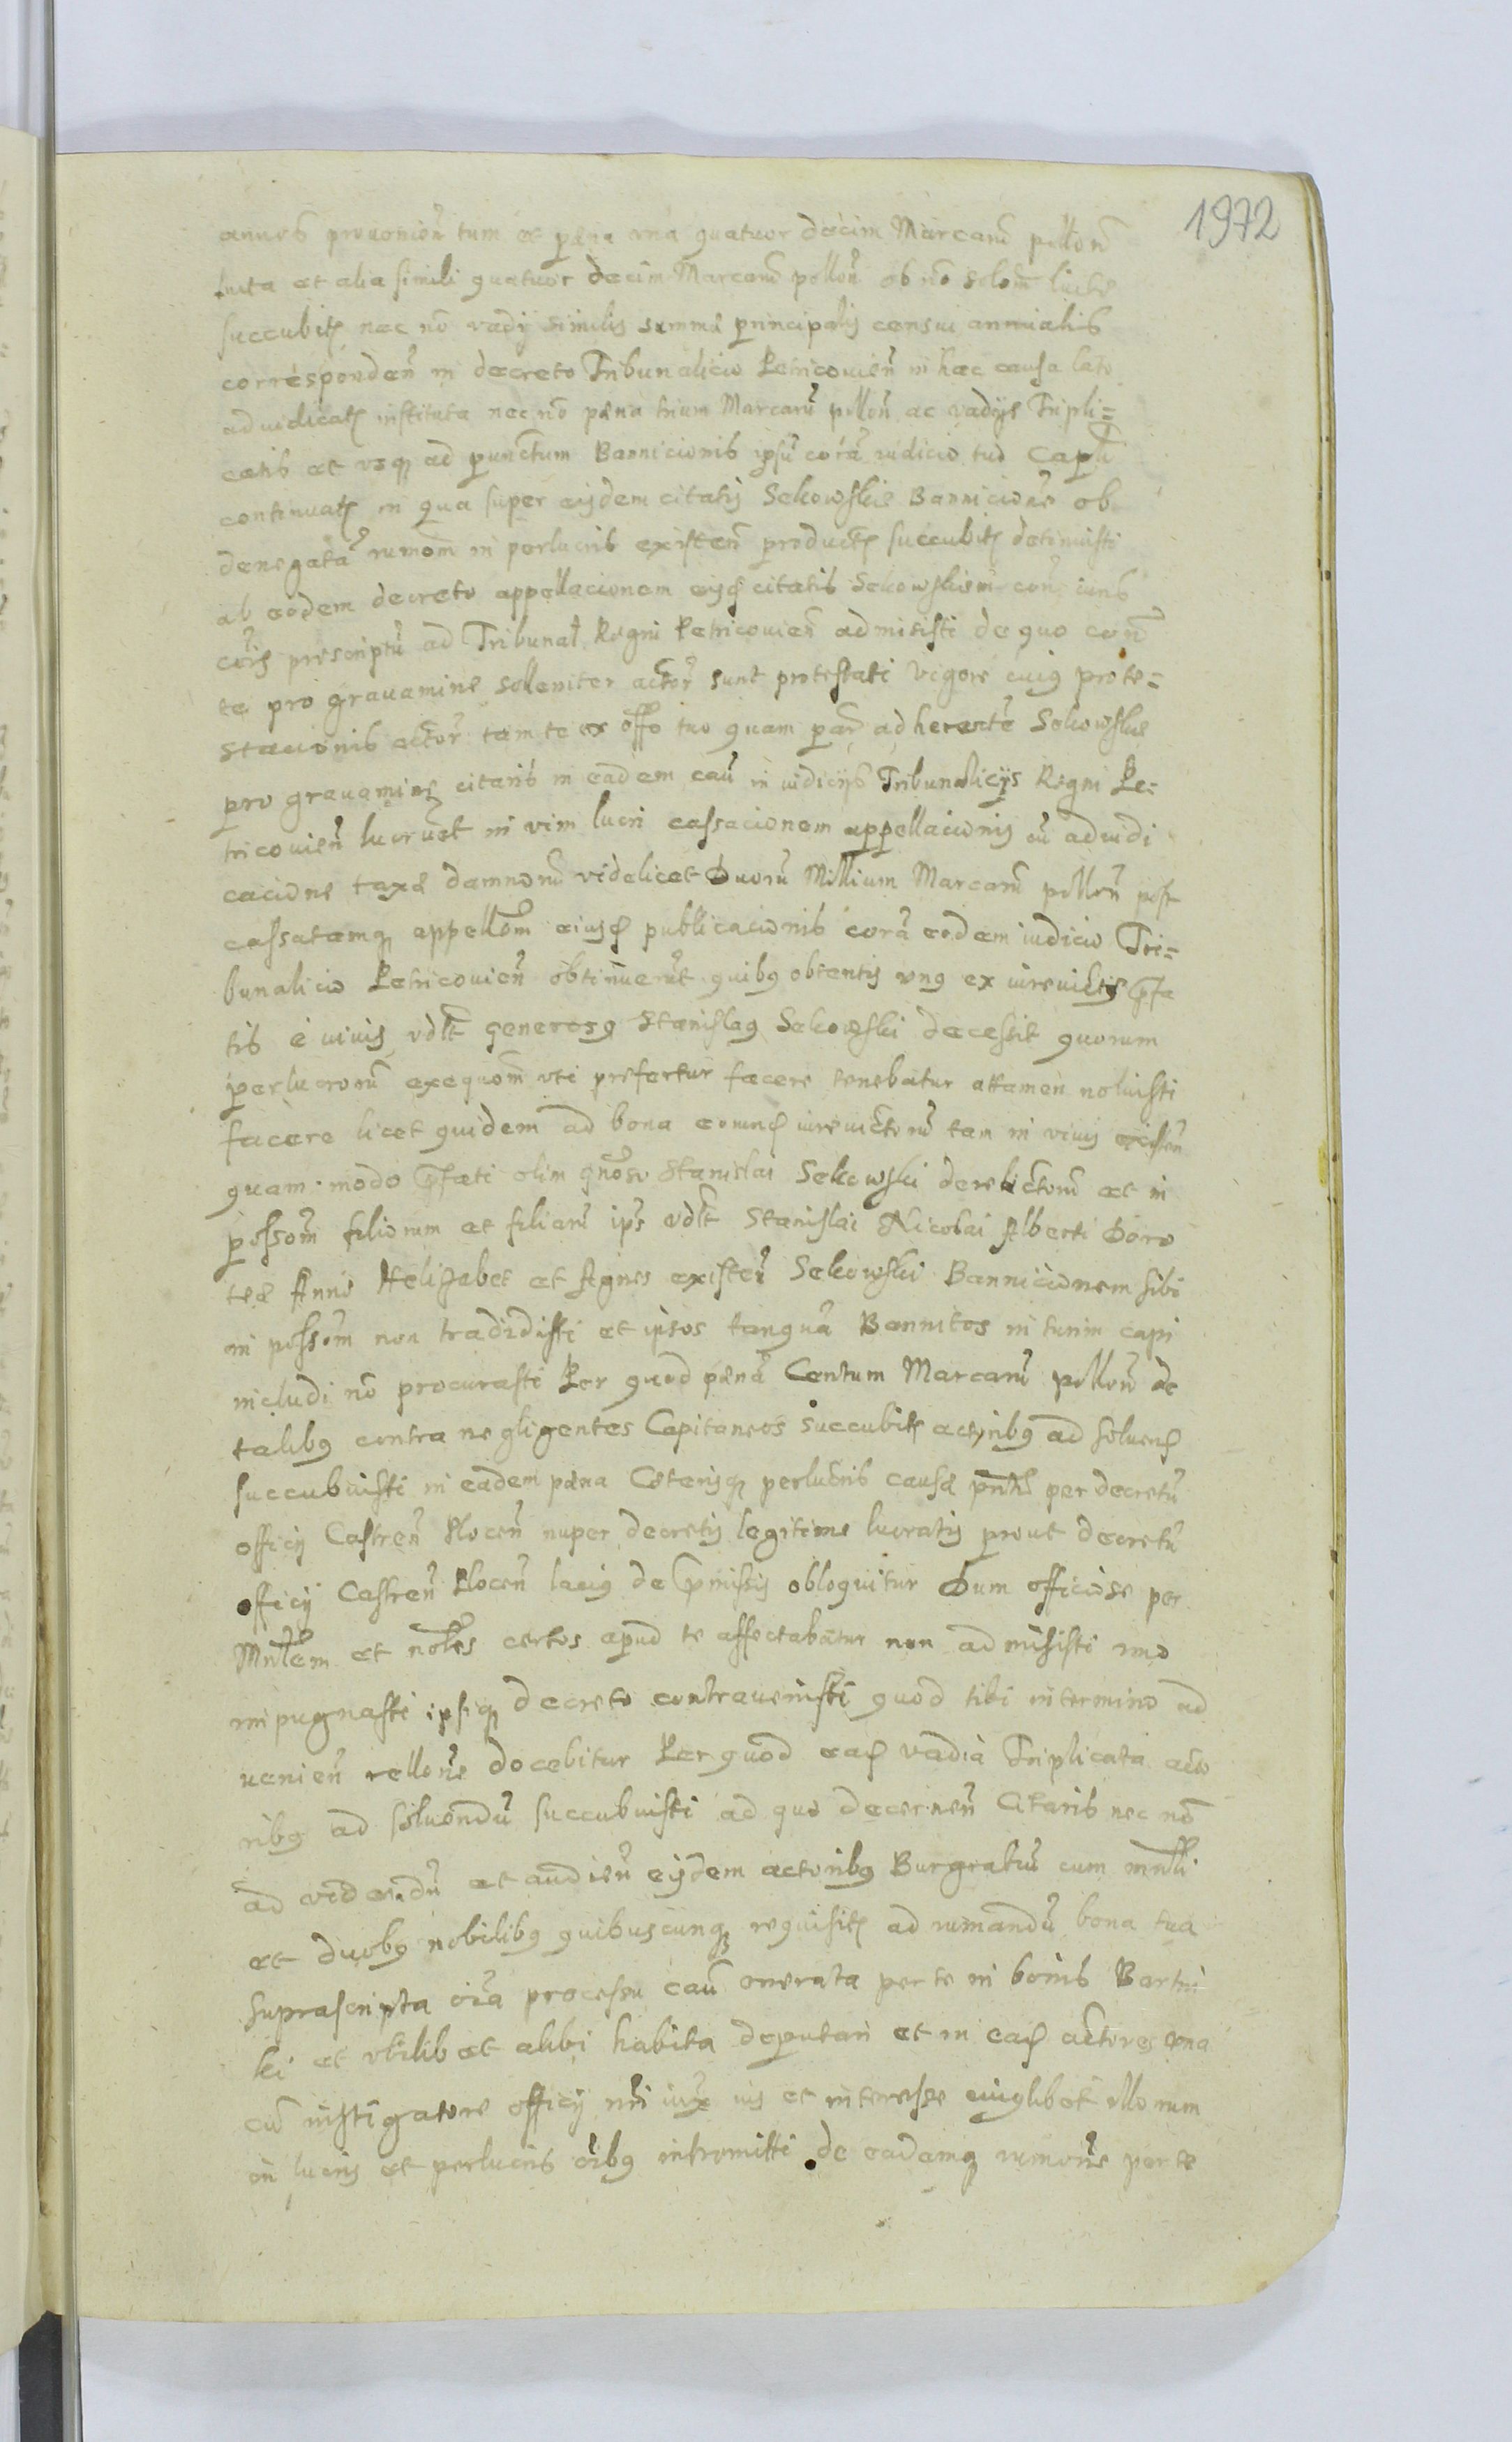 1972
annos prouenien̄ tum et pæna una quatuor decim Marcarū pollon̄
luita et alia simili quatuor decim Marcarū pollon̄ ob nō solom̄
succubit nec nō vadij similis summæ principalis census annualis
corresponden̄ in decreto Tribunalicio Petricouien̄ in hac causa lato
adiudicat instituta nec nō pæna trium Marcarū pollon̄ ac vadijs Tripli=
catis et usq ad punctum Bannicionis ipsū corā iudicio tuo Capli
continuat in qua super eisdem citatis Sekowskie Bannicione ob
denegatā rumom̄ in perlucris existen̄ product succubit detinuisti
ab eodem decreto appellacionem eisd citatis Sekowskiem con̄ iuris
cōis prescriptū ad Tribunal Regni Petricouien̄ admisisti de quo con̄
te pro grauamine solleniter actor̄ sunt protestati Vigore cuius prote=
stacionis actor̄ tam te ex offo tuo quam par̄ adherente Sekowskie
pro grauamine citaris in eadem caū in iudicijs Tribunalicijs Regni Pe=
tricouien̄ lucrūet in vim lucri cassacionem appellacionis cū adiudi
cacione taxæ damnorū videlicet Duorū Millium Marcarū pollon̄ post
cassatamq appellom̄ eiusd publicacionis corā eodem iudicio Tri=
bunalicio Petricouien̄ obtinuerūt quibus obtentis unus ex iurevictis pfa
tis e viuis vdlt generosus Stanislaus Sekowski decessit quorum
perlucrorū exequom̄ uti prefertur facere tenebatur attamen noluisti
facere licet quidem ad bona eorund iurevictorū tam in viuis existen̄
quam modo pfati olim gnosi Stanislai Sekowski derelictorū et in
possom̄ filiorum et filiarū ips vdlt Stanislai Nicolai Alberti Doro
teæ Annæ Helizabet et Agnes existen̄ Sekowski Bannicionem sibi
in possom̄ non tradidisti et ipsos tanquā Bannitos in turim capi
includi nō procurasti Per quod pænā Centum Marcarū pollon̄ de
talibus contra negligentes Capitaneos succubit actoribus ad soluend
succubuisti in eadem pæna Cæterisq perlucris causæ pntis per decretū
officij Castren̄ Plocen̄ nuper decretis legitime lucratis prout decretū
officij Castren̄ Plocen̄ lacius de pmissis obloquitur Dum officiose per
Mnlem et nobles certos apud te affectabatur non admisisti imo
impugnasti ipsiq decreto contrauenisti quod tibi in termino ad
uenien̄ rellone docebitur Per quod ead vadia Triplicata acto
ribus ad soluendū succubuisti ad quæ decernen̄ Citaris nec nō
ad videndū et audien̄ eisdem actoribus Burgrabiū cum mnli
et duobus nobilibus quibuscunq requisit ad rumandū bona tua
suprascripta oīa processu caū onerata per te in bonis Bartni
ki et ubilibet alibi habita deputari et in ead actores una
cū instigatore officij nri iux ius et interesse cuiuslibet illorum
in lucris et perlucris oībus intromitti de eademq rumone per te